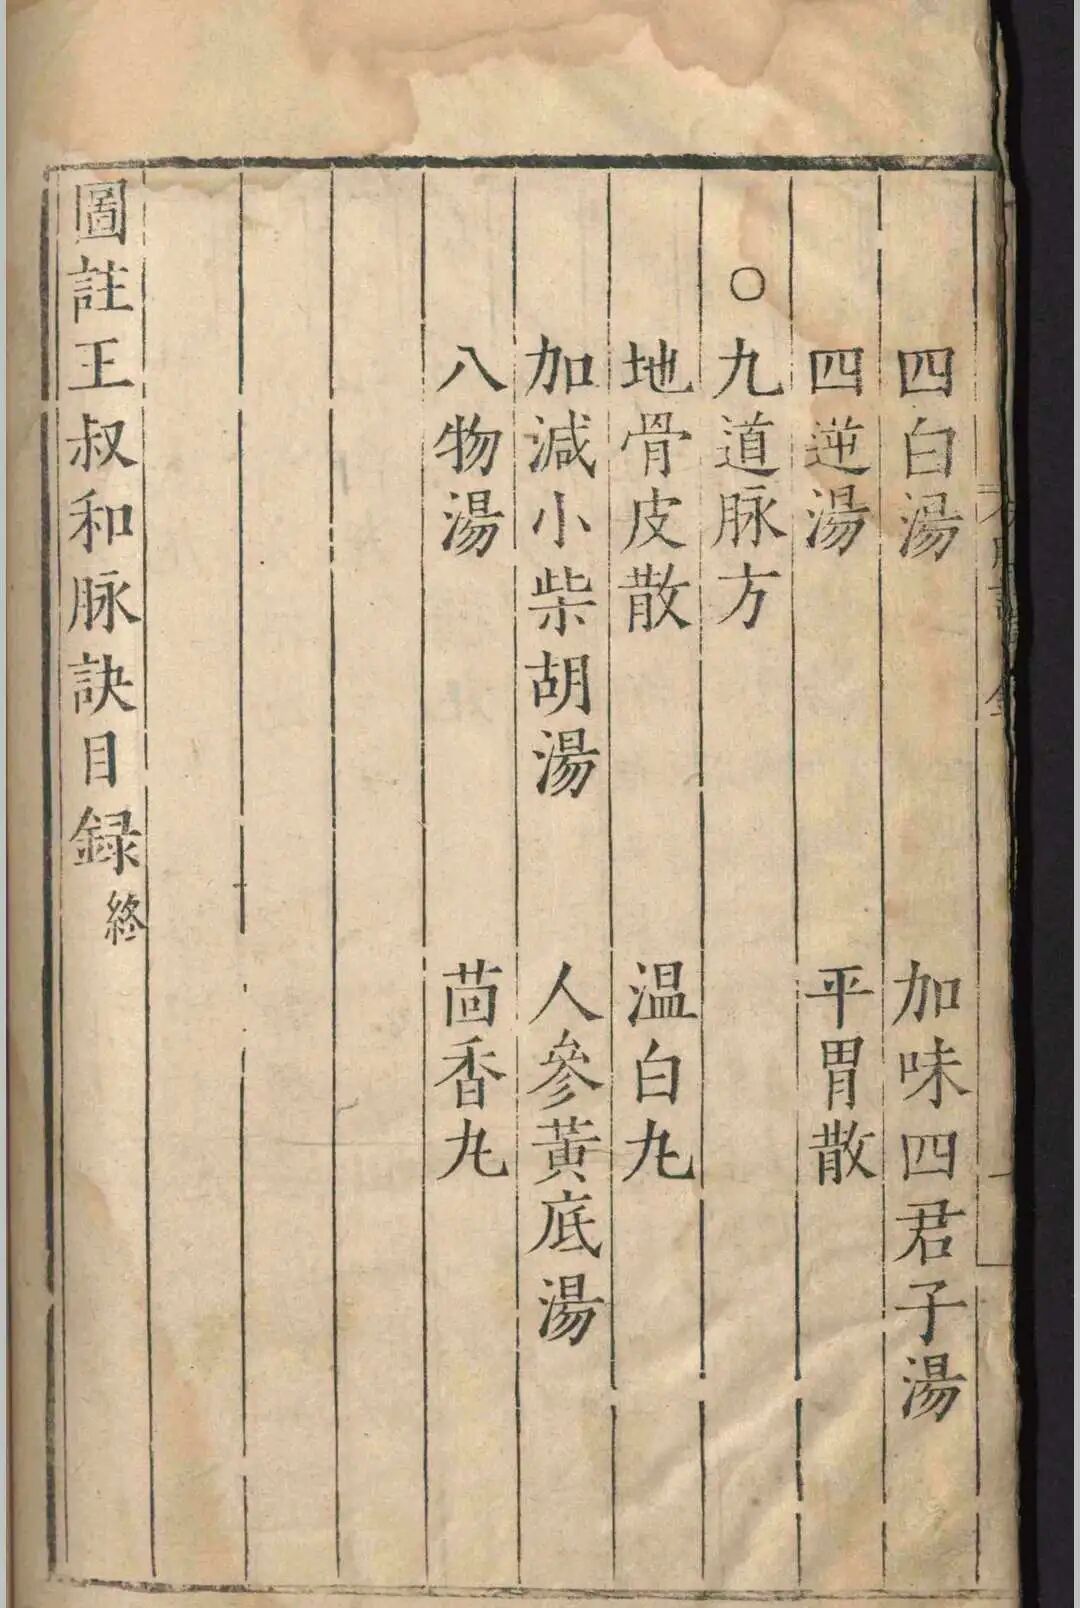 四白湯 加味四君子湯
四逆湯 平胃散
○九道脉方
地骨皮散 温白丸
加減小柴胡湯 人參黃底湯
八物湯 茴香丸
圖註王叔和脉訣目録終